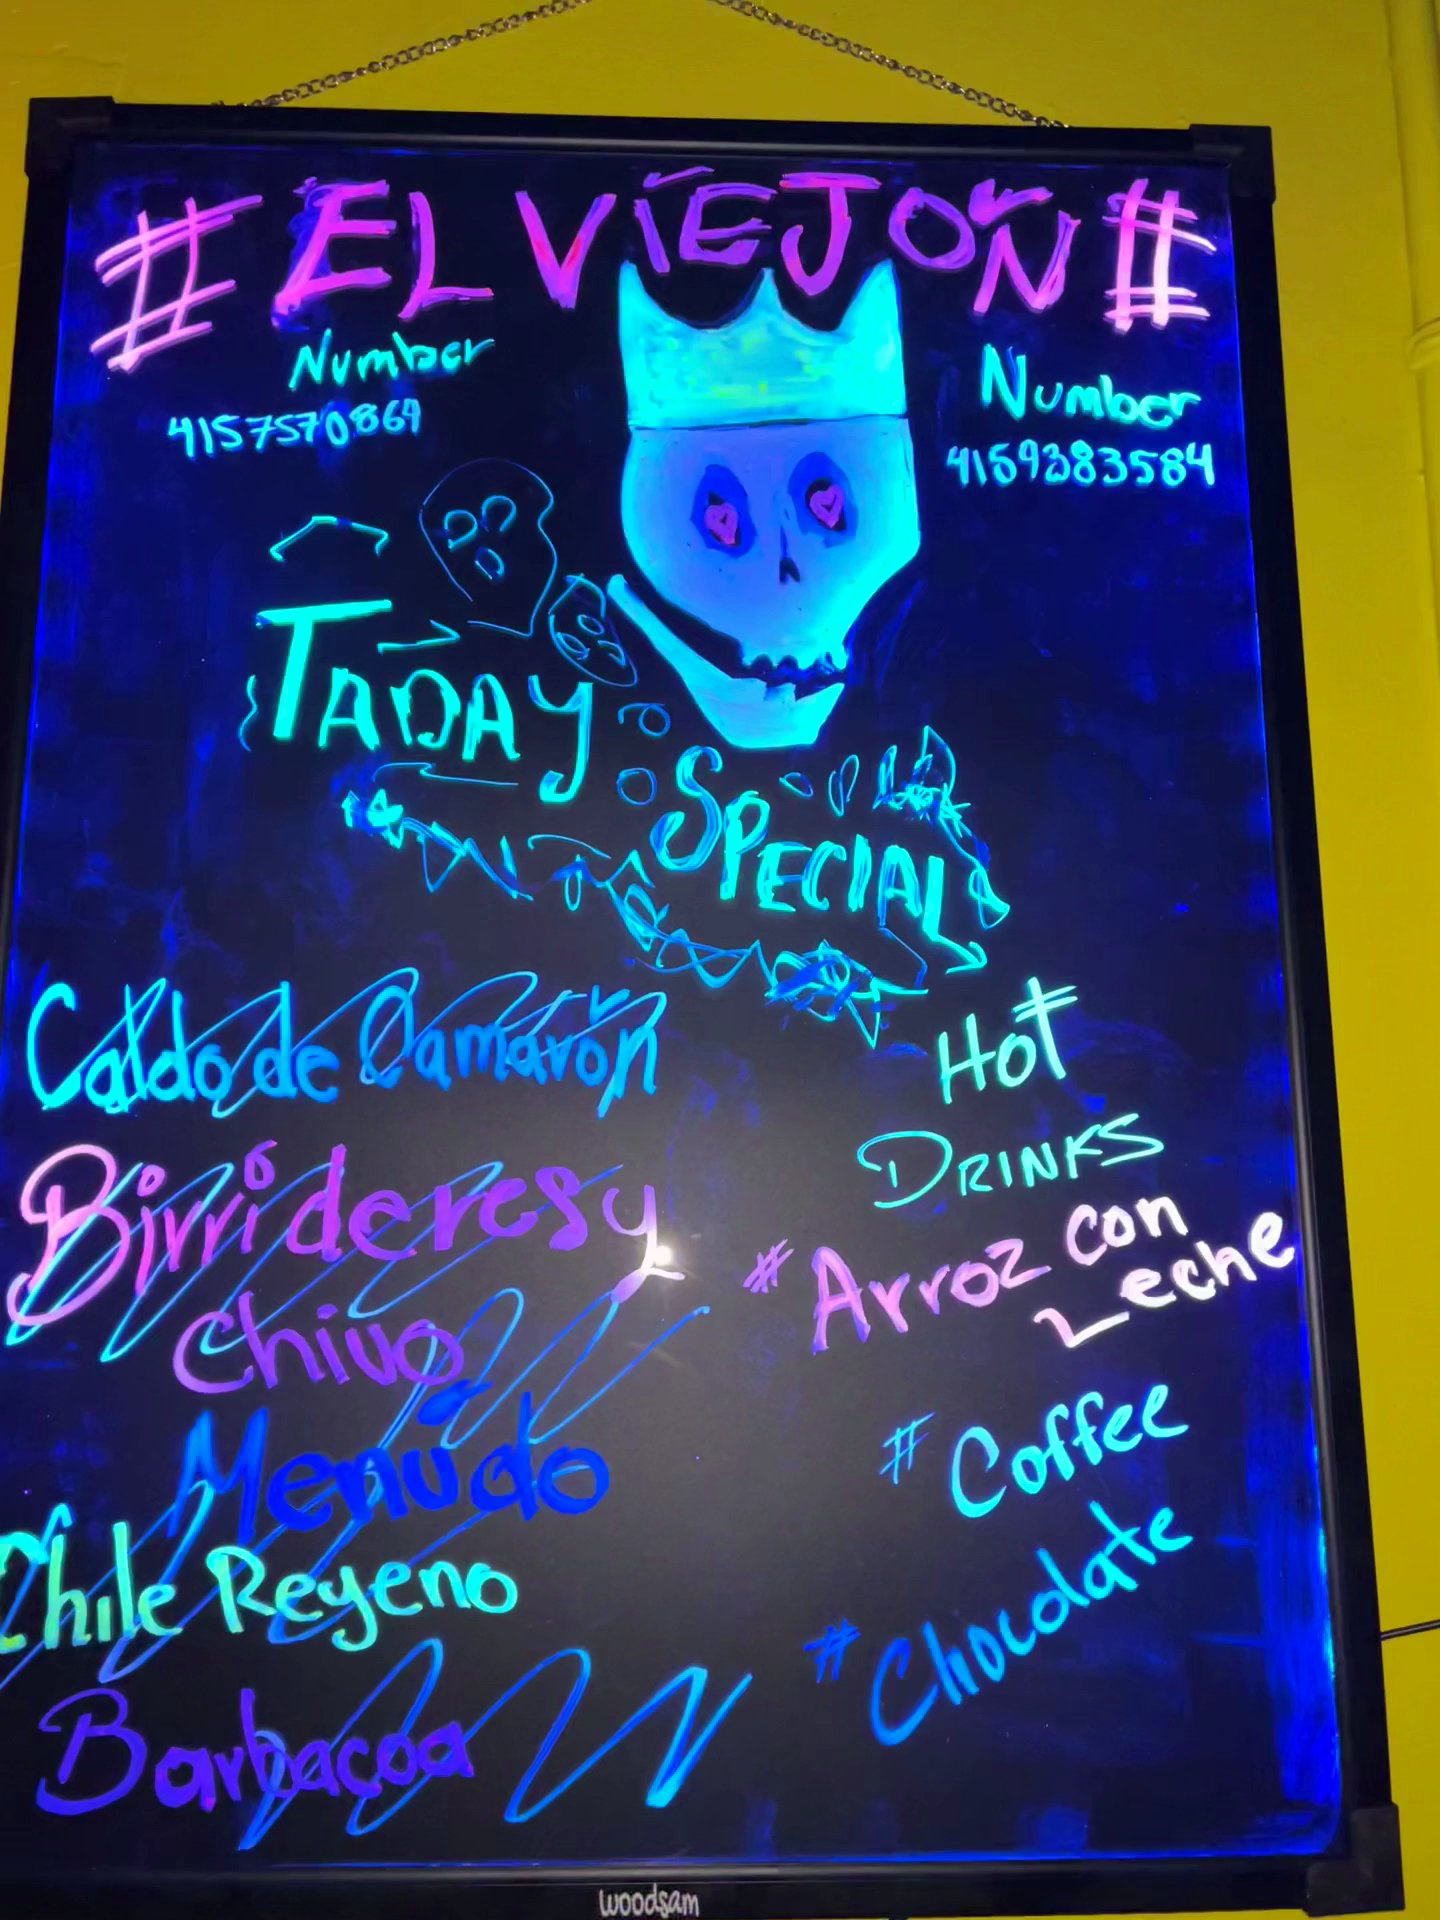 # EL VIEJON #
Number
4157570869
Number
4159383584
TADAY
SPECIAL
Caldo de Camarón
Birri de res y
Chivo
Menudo
Chile Reyeno
Barbacoa
Hot
DRINKS
# Arroz con
Leche
# Coffee
# Chocolate
woodsam